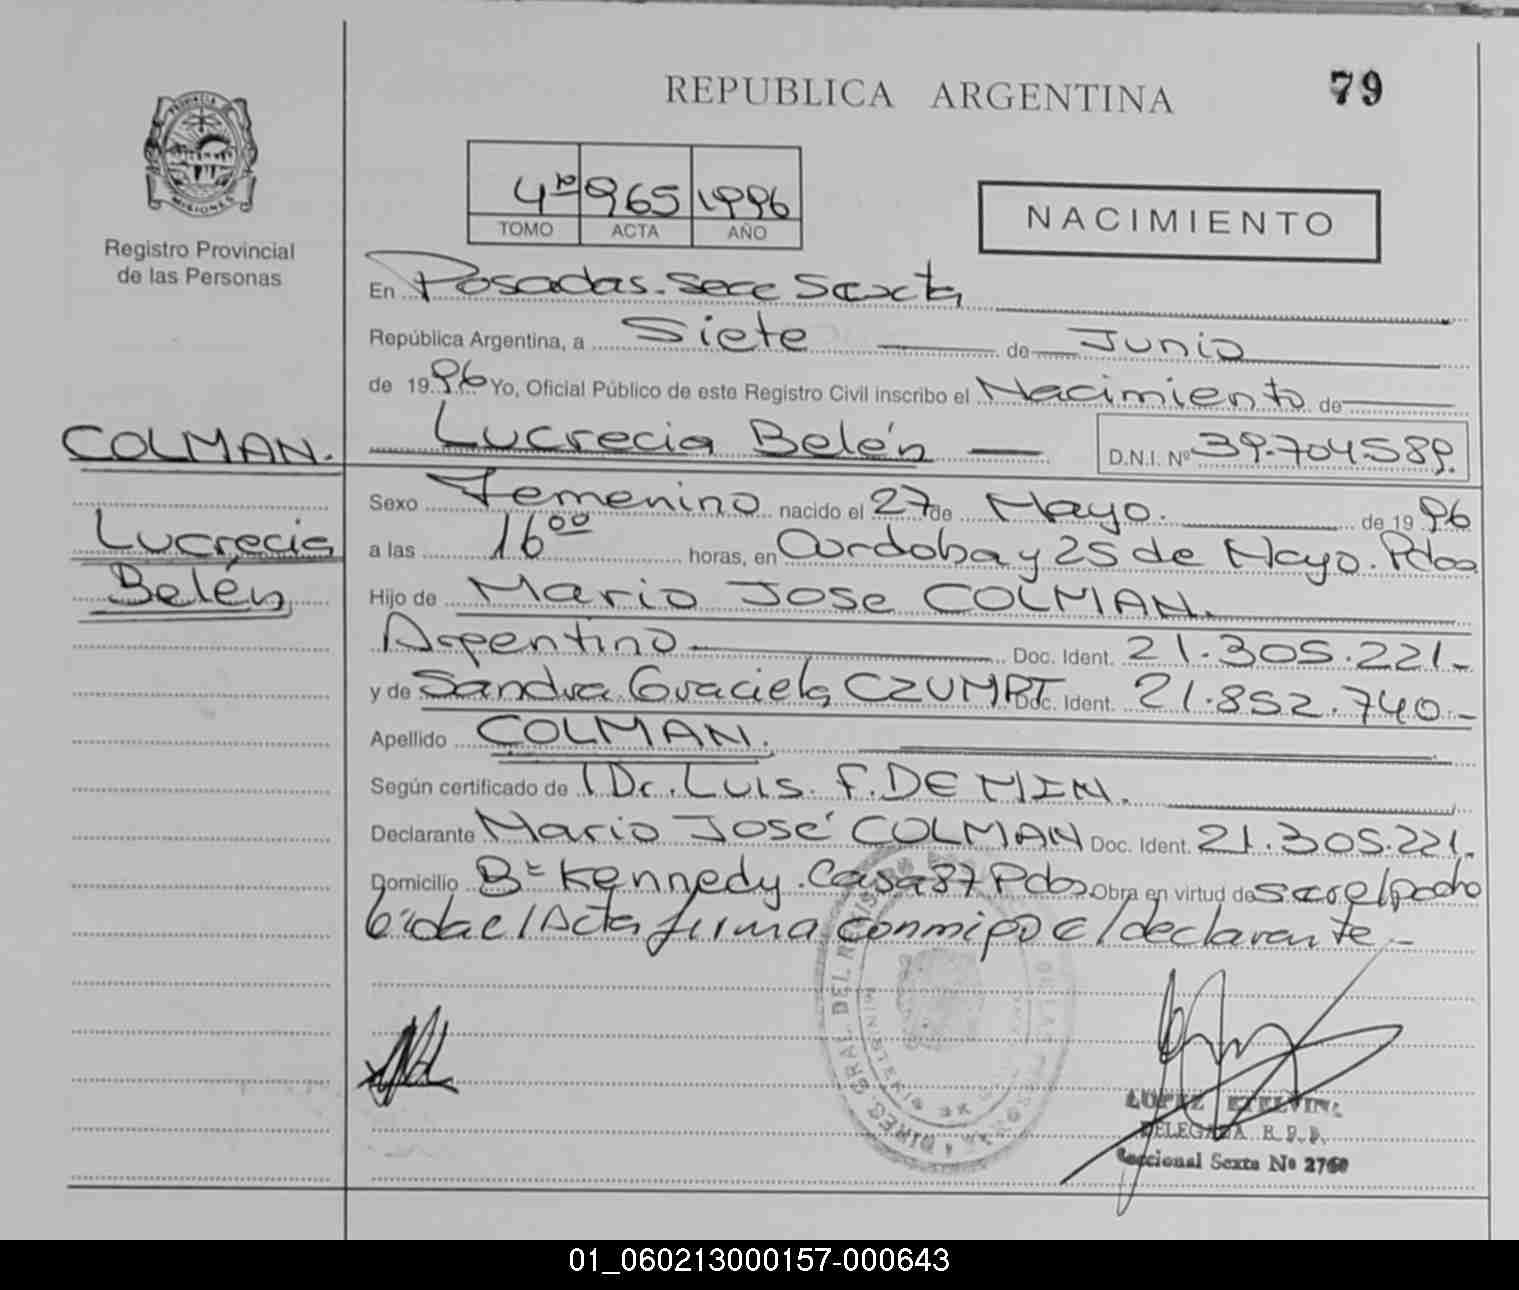 REPUBLICA ARGENTINA
79
PROVINCIA DE
MISIONES
Registro Provincial
de las Personas
4to 965 1996
TOMO ACTA AÑO
NACIMIENTO
En Posadas. Secc Sexta
República Argentina, a Siete de Junio
de 1996 Yo, Oficial Público de este Registro Civil inscribo el Nacimiento de
COLMAN.
Lucrecia Belén D.N.I. Nº 39.704.589.
Lucrecia
Belén
Sexo Femenino nacido el 27 de Mayo. de 1996
a las 16 00 horas, en Cordoba y 25 de Mayo. Pdas
Hijo de Mario Jose COLMAN.
Argentino Doc. Ident. 21.305.221.-
y de Sandra Graciela CZUMPT Doc. Ident. 21.852.740.-
Apellido COLMAN.
Según certificado de Dr. Luis. F. DE MIN.
Declarante Mario José COLMAN Doc. Ident. 21.305.221.
Domicilio Bº Kennedy. Casa 87 Pdas Obra en virtud de
Acta firma conmigo e/declarante.-
LOPEZ ETELVINA
DELEGADA R.P.P.
Seccional Sexta Nº 2760
01_060213000157-000643